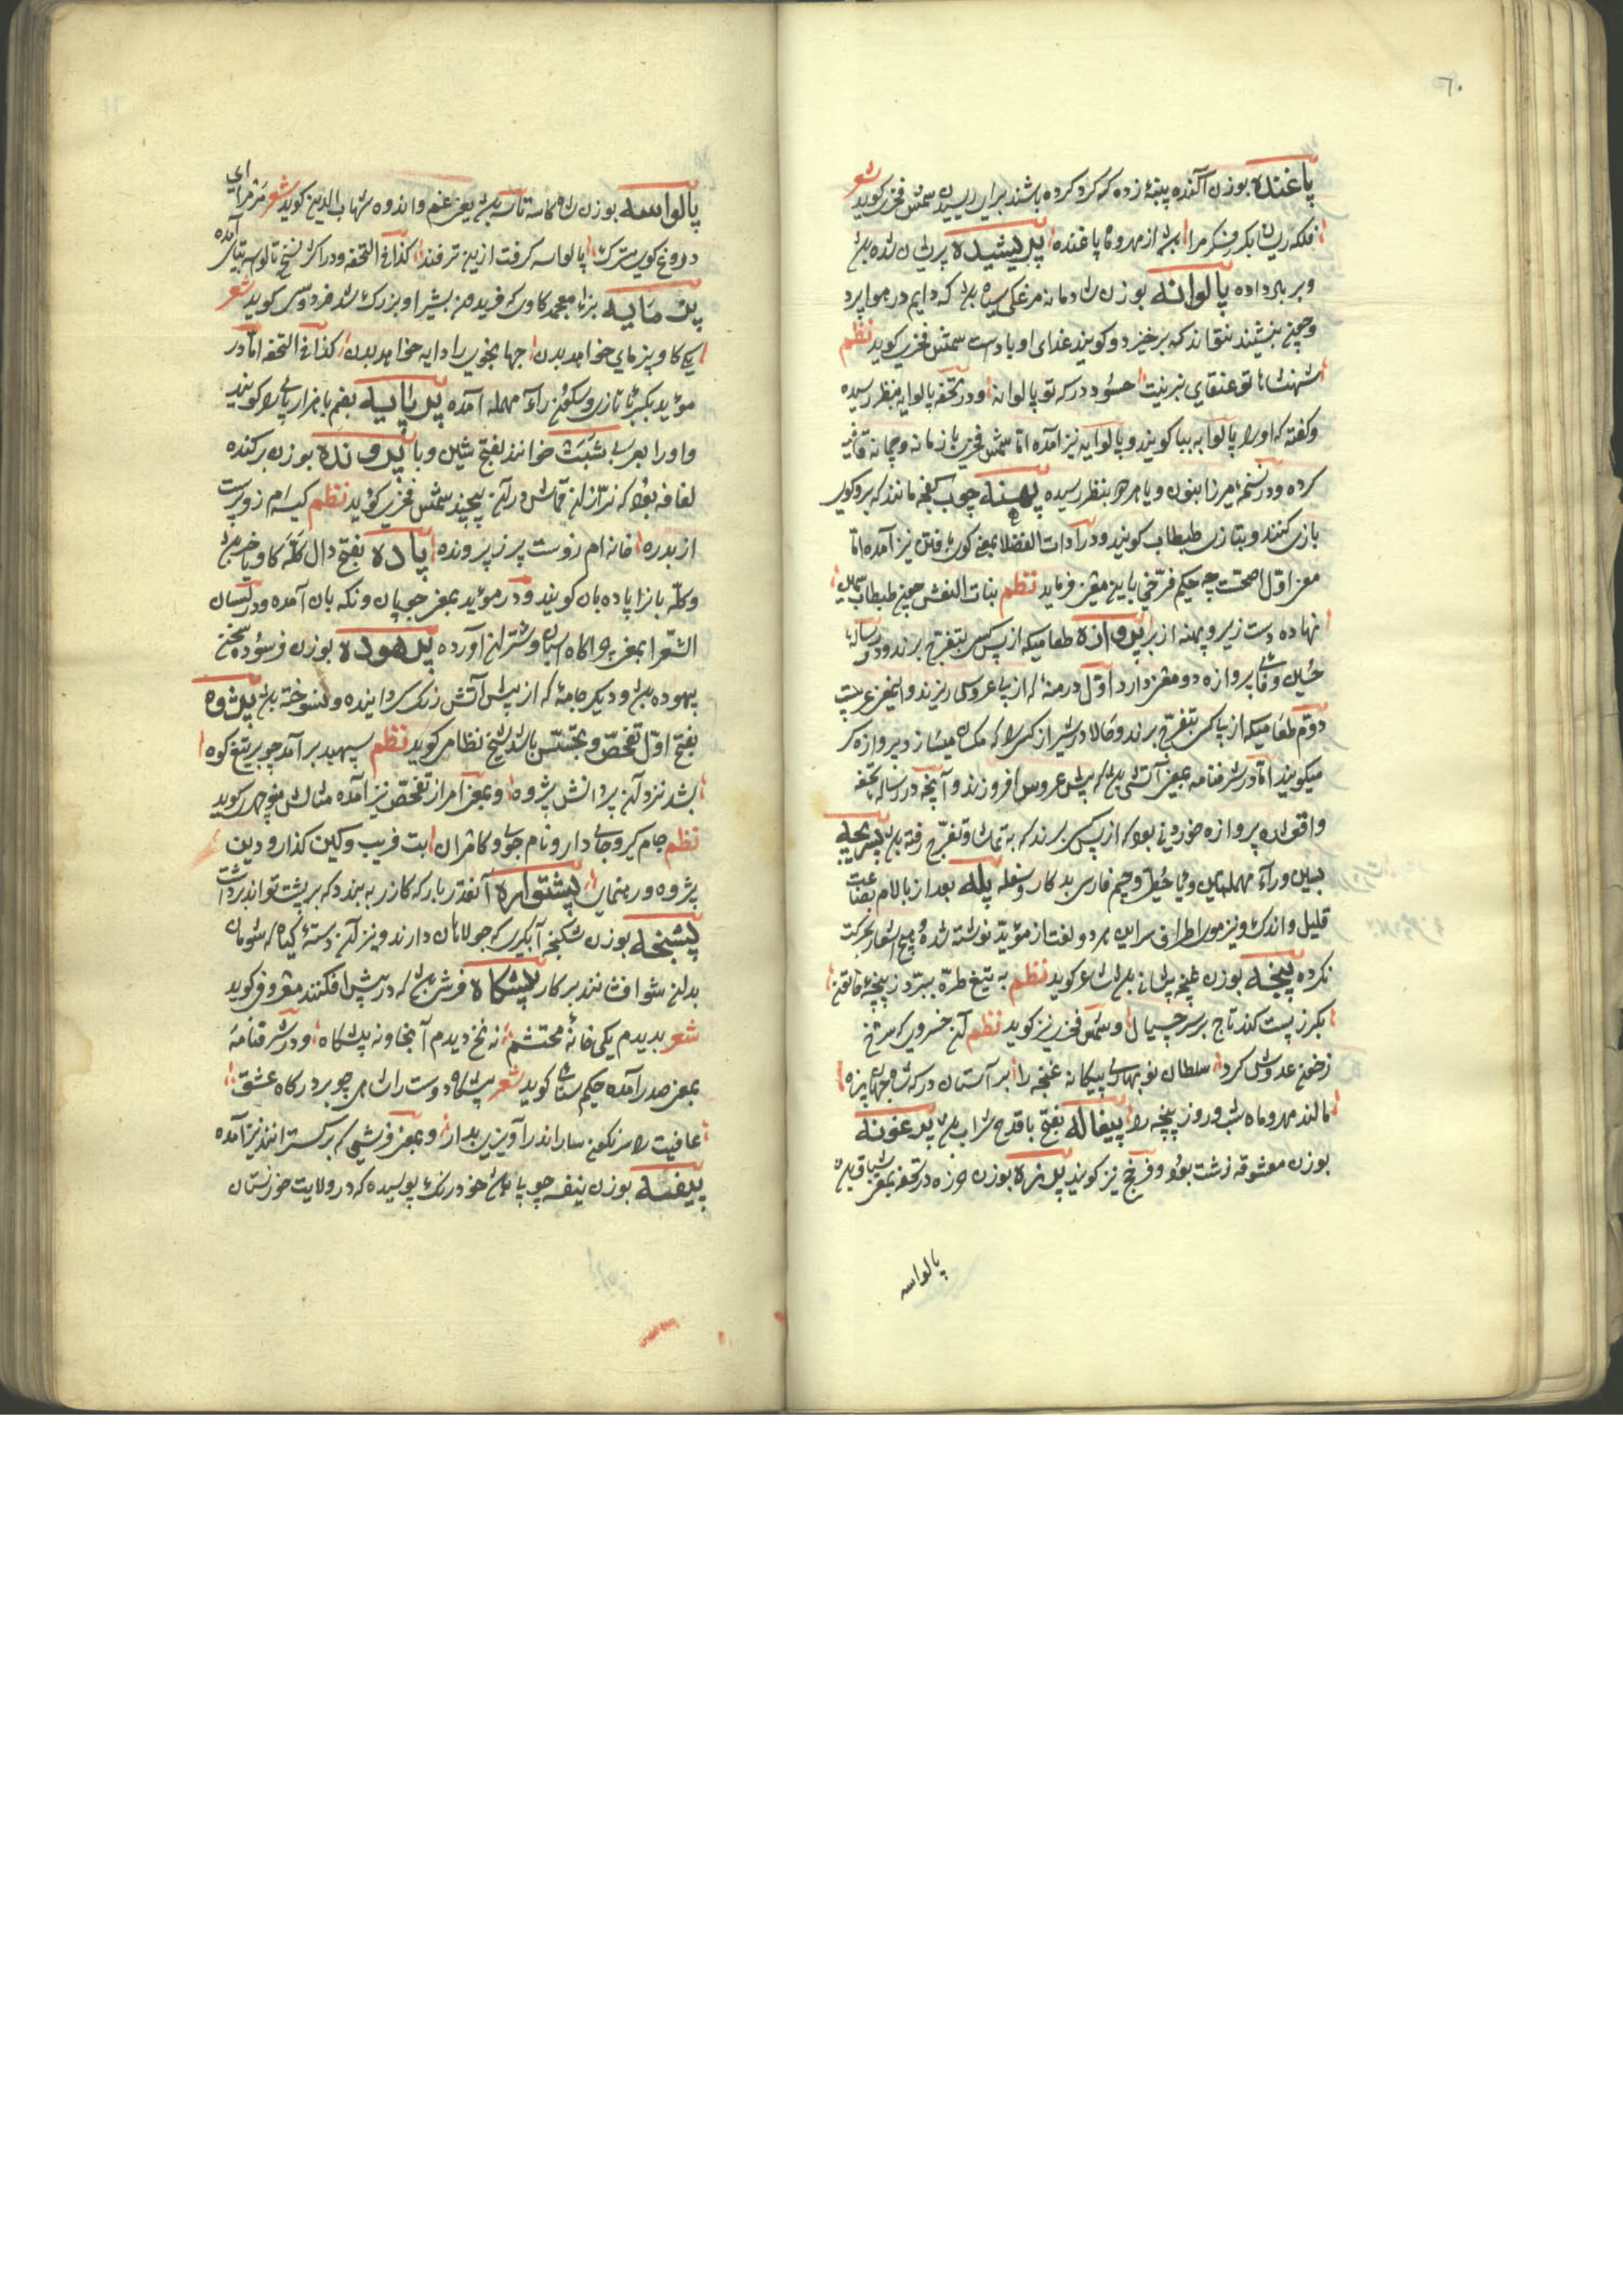 ٦٠
پاغنده بوزن آکنده پنبهٔ زده که کرد کرده باشند برای ریسیدن شمس فخری کوید شعر
فلکه ریسان بکر و فکر مرا از مهر و ماه پاغنده پریشیده پریشان شده
و بر باد داده پالوانه بوزن شادمانه مرغکی سیاه که دایم در هوا پرد
و چون بنشیند نتواند که برخیزد و کویند غذای او باد است شمس فخری کوید نظم
شهنشاها تو عنقای نبرینت حسود درکه تو پالوانه و در تحفه پالوایه بنظر رسیده
و کفته که اورا پالوا به بیا کویند و پالوایه نیز آمده اما شمس فخری با زمانه و چمانه قافیه
کرده و در نسخهٔ میرزا بنون و یا هر دو بنظر رسیده پهنه چوب کفچه مانند که برو کوی
بازی کنند و بتازی طبطاب کویند و در آدات الفضلا بمعنی نیز آمده اما
معنی اول اصحست چه حکیم فرخی باین معنی فرماید نظم بنات النعش چون طبطاب سیمین
نهاده دست زیر و پهنه از بر پروازه طعامیکه از پس کس بتفرج برند و در رسالهٔ
حسین وفائی پروازه دو معنی دارد اول درمنهٔ که از پی عروس ریزند و این معنی غریبست
دوم طعامیکه از پا کس بتفرج برند و حالا در شیراز کسی را که میسازد پروازه کر
میکویند اما در شرفنامه بمعنی آتشی که پیش عروس افروزند و آنچه در رساله تحفه
واقع شده پروازه خوردنی بود که از پس کس برند که به تماشا و تفرج رفته
بسین و رآء مهملتین و یاء حطی و جیم فارسی بد کار و سفله پله بعد از با لام بضاعت
قلیل و اندک و نیز موی اطراف سر این هر دو لغت از مؤید نوشته شده و هیچ اشعار بحرکت
نکرده پیچه بوزن غنچه پیشانی شاعر کوید نظم به تیغ طره ببرد ز پیچهٔ خاتون
بکرز پست کند تاج بر سر چیپال و شمس فخری نیز کوید نظم آن خسروی که سرخ
ز خون عدوش کرد سلطان نوبهاری پیکانه غنچه را بر آستان درکه شاه جهان پناه
مالند مهر و ماه شب و روز پیچه را پیغاله بفتح با قدح شراب پرغونه
بوزن معشوقه زشت بود و فرنج نیز کویند پریزه بوزن در تحفه بمعنی
پالواسه
پالواسه بوزن شاه کاسه تاسه یعنی غم و اندوه شهاب الدین کوید شعر مر مرا ای
دروغ کوی سترک پالواسه کرفت ازین ترفند کذا فی التحفه و در اکثر نسخ تالواسه بتای آمده
پرمایه بزاء معجمه کاوی که فریدون بشیر او بزرک شد فردوسی کوید شعر
یکی کاو پرمای خواهد بدن جهانجوی را دایه خواهد بدن کذا فی التحفه اما در
مؤید بکسر با تازی و سکون راء مهمله آمده پرپایه بضم با هزارپای را کویند
و اورا بعربی شبث خوانند بفتح شین و با پرونده بوزن برکنده
لفافه بود که بزازان قماش در آن پیچند شمس فخری کوید نظم کیسه ام زو پرست
از بدره خانه ام زوست پر ز پرونده پاده بفتح دال کلهٔ کاو و خر
و کله بان را پاده بان کویند و در مؤید بمعنی چوپان و نکه بان آمده و در لسان
الشعرا بمعنی چراکاه اسپان و شتران آورده پرهوده بوزن فرسوده سخن
بیهوده و دیکر جامهٔ که از پیش آتش زنک کردانیده و نسوخته پژوه
بفتح اول تفحص و تجسس باشد شیخ نظامی کوید نظم سپهبد برآمد چو بر تیغ کوه
بشد نزد آن پر دانش پژوه و بمعنی امر از تفحص نیز آمده مثالش منوچهری کوید
نظم جام کیر و جای دار و نام جوی و کامران بت فریب و کین کذار و دین
پژوه و رهنمای پشتواره آنقدر بار که کازر به بندد که بر پشت تواند برداشت
پشنجه بوزن شکنجه آبکیری که جولاهان دارند و نیز آن دستهٔ کیاه که شومالان
بدان شو افشانند بر کار پیشکاه فرشی که در پیش افکنند معروفی کوید
شعر بدیدم یکی خانهٔ محتشم نه نخ دیدم آنجا و نه پیشکاه و در شرفنامه
بمعنی صدر آمده حکیم سنائی کوید شعر پیشکاه دوست را شاید چو بر درکاه عشق
عافیت را سرنکون سار اندر آویزی بدار و بمعنی فرشی که بر کسترانند نیز آمده
پیفنه بوزن نیفه چوبی خود رنک پوسیده که در ولایت خوزستان